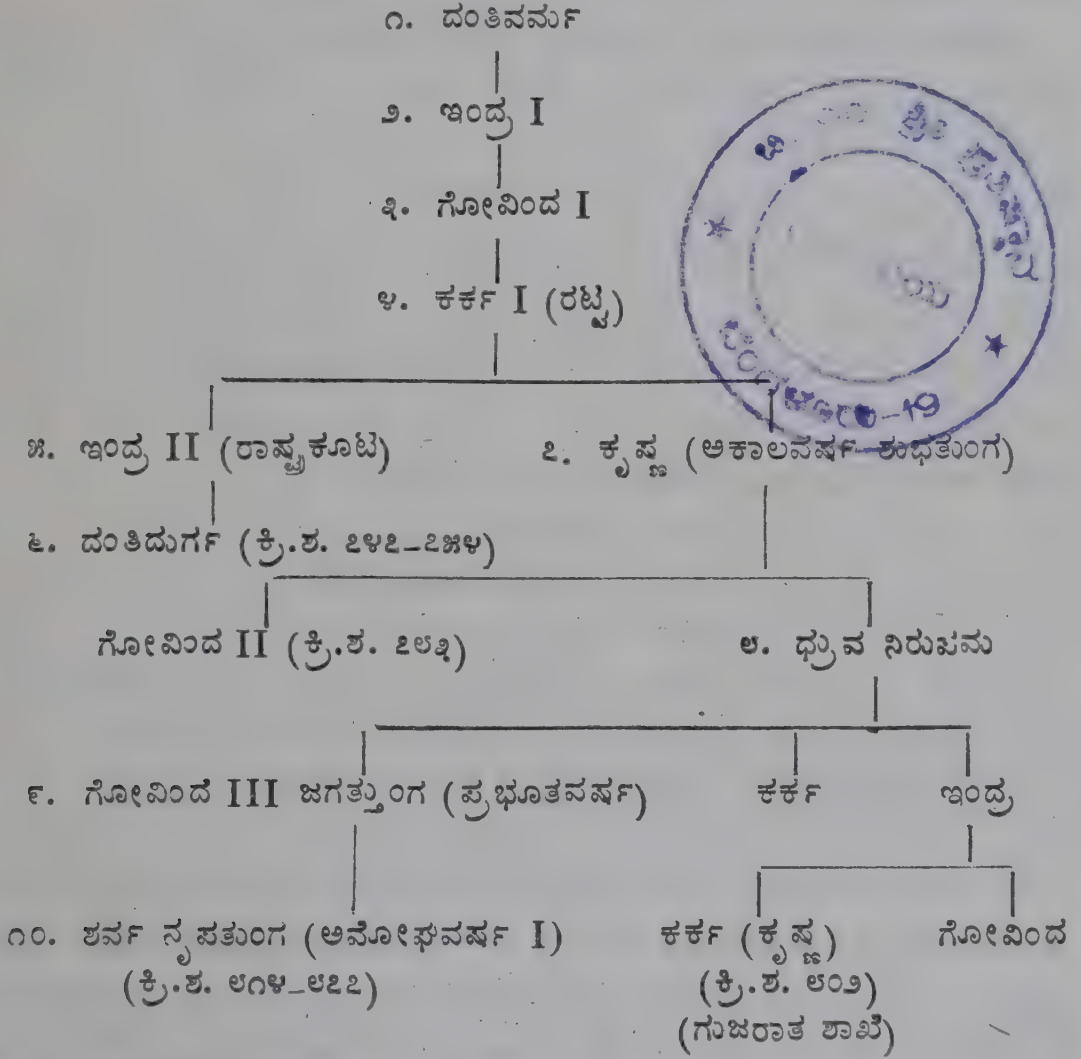 ೧. ದಂತಿವರ್ಮ
೨. ಇಂದ್ರ I
೩. ಗೋವಿಂದ I
೪. ಕರ್ಕ I (ರಟ್ಟ)
೫. ಇಂದ್ರ II (ರಾಷ್ಟ್ರಕೂಟ) ೭. ಕೃಷ್ಣ (ಅಕಾಲವರ್ಷ-ಶುಭತುಂಗ)
೬. ದಂತಿದುರ್ಗ (ಕ್ರಿ.ಶ. ೭೪೭–೭೫೪)
ಗೋವಿಂದ II (ಕ್ರಿ.ಶ. ೭೮೩) ೮. ಧ್ರುವ ನಿರುಪಮ
೯. ಗೋವಿಂದ III ಜಗತ್ತುಂಗ (ಪ್ರಭೂತವರ್ಷ) ಕರ್ಕ ಇಂದ್ರ
೧೦. ಶರ್ವ ನೃಪತುಂಗ (ಅಮೋಘವರ್ಷ I) ಕರ್ಕ (ಕೃಷ್ಣ) ಗೋವಿಂದ
(ಕ್ರಿ.ಶ. ೮೧೪–೮೭೭) (ಕ್ರಿ.ಶ. ೮೦೨)
(ಗುಜರಾತ ಶಾಖೆ)
ಬೆಂಗಳೂರು-19